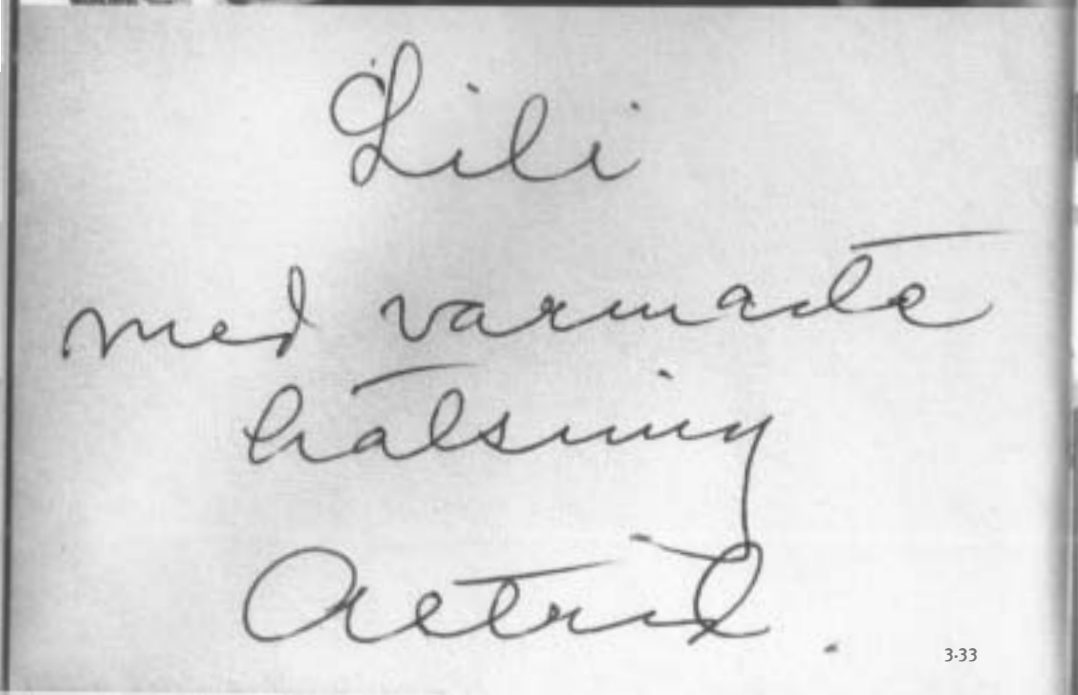 Lili
med varmaste
hälsning
Astrid.
3-33